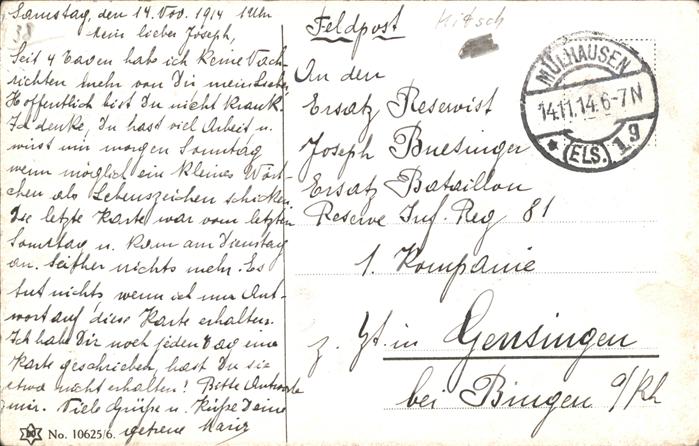 Samstag, den 14. Nov. 1914 1 Uhr
Mein lieber Joseph,
Seit 4 Tagen habe ich keine Nach-
richten mehr von Dir mein
Hoffentlich bist Du nicht krank.
Ich denke, Du hast viel Arbeit u.
wirst mir morgen Sonntag
wenn möglich ein kleines Wört-
chen als Lebenszeichen schicken.
Die letzte Karte war vom letzten
Sonntag u. kam am Dienstag
an. Seither nichts mehr. Es
tut nichts, wenn ich nur Ant-
wort auf diese Karte erhalte.
Ich habe Dir noch jeden Tag eine
Karte geschrieben, hast Du sie
etwa nicht erhalten! Bitte Antworte
mir. Viele Grüße u. Küße Deine
getreue
No. 10625/6.
Feldpost
Kitsch
An den
Ersatz Reservist
Joseph
Ersatz Bataillon
Reserve Inf. Reg 81
1. Kompanie
z. Zt. in Gensingen
bei Bingen a/Rh
MÜLHAUSEN
14.11.14.6-7N
* (ELS.) 1g